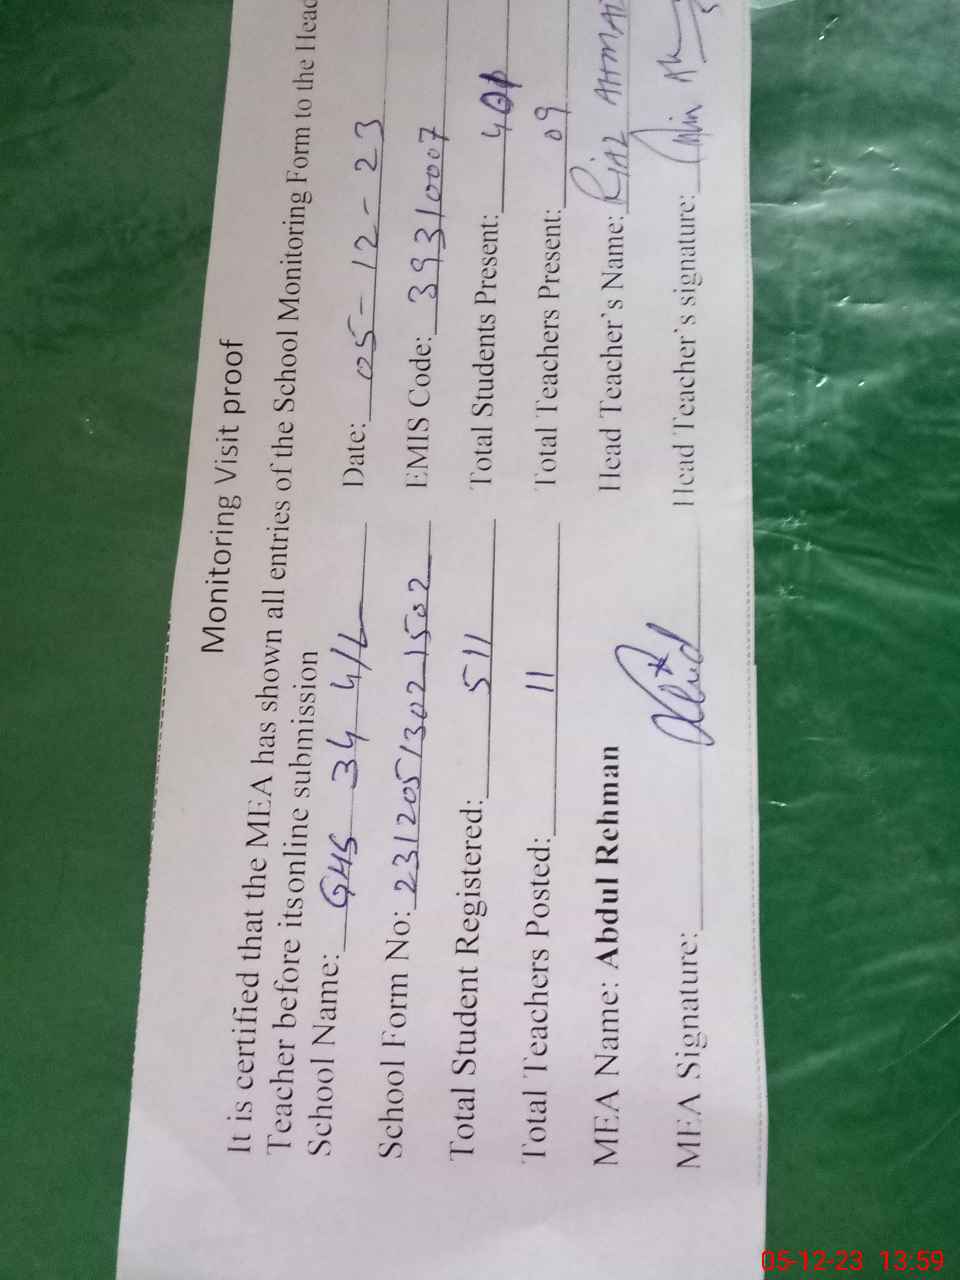 Monitoring Visit proof
It is certified that the MEA has shown all entries of the School Monitoring Form to the Head
Teacher before itsonline submission
School Name: GHS 34 4/L Date: 05-12-23
School Form No: 23120513021502 EMIS Code: 39310007
Total Student Registered: 511 Total Students Present:
Total Teachers Posted: 11 Total Teachers Present: 09
MEA Name: Abdul Rehman Head Teacher's Name: RiAZ AHMAD
MEA Signature: Head Teacher's signature:
05-12-23 13:59